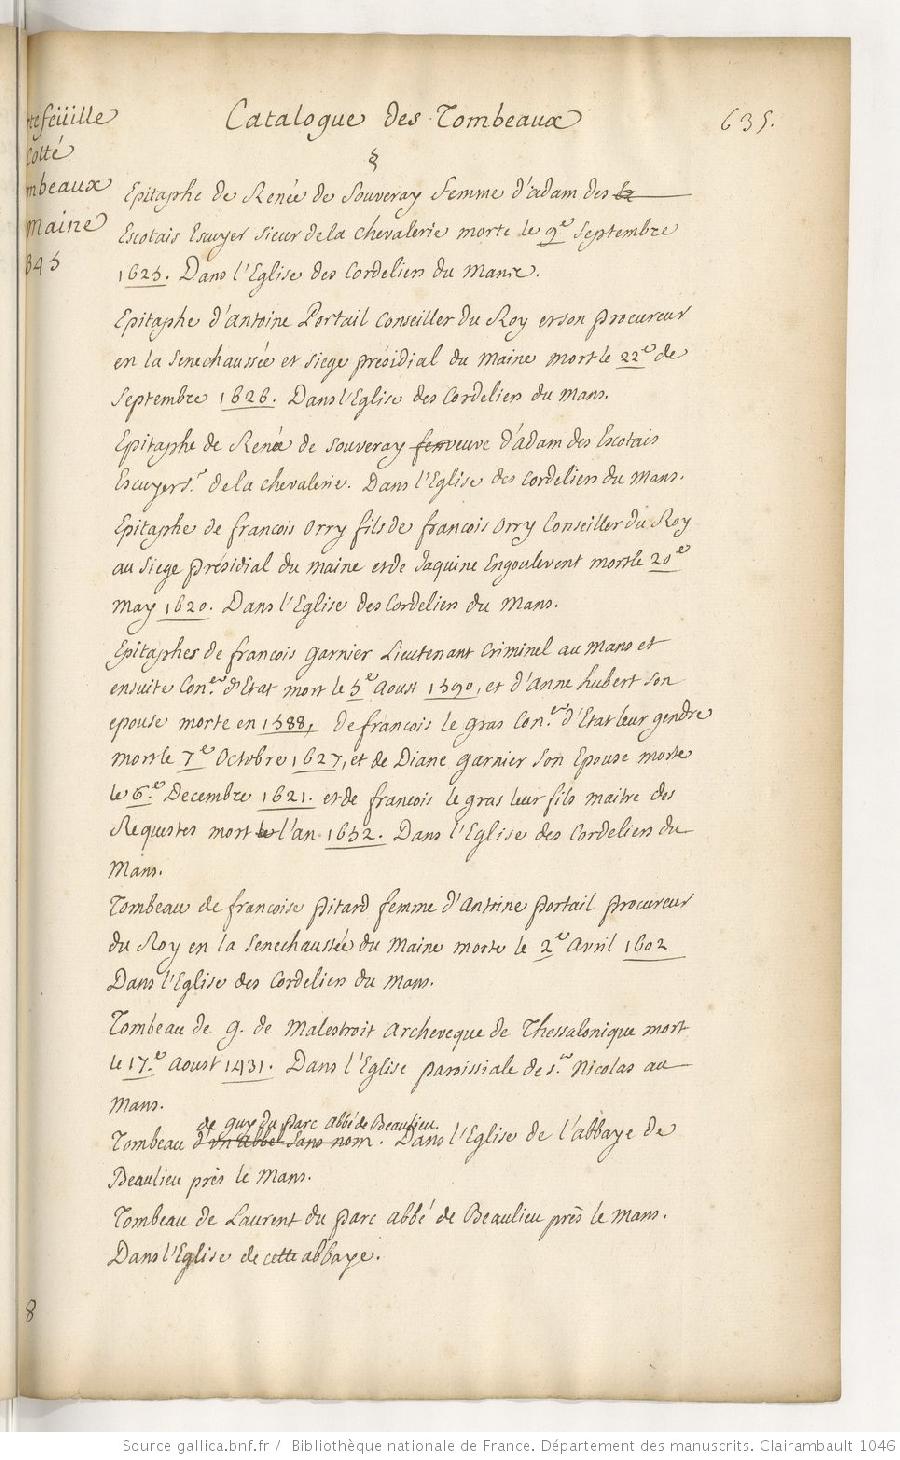 Catalogue des Tombeaux 635.
tefeüille
Cotté
mbeaux
maine
§
Epitaphe de Renée de Souveray femme d'adam des
Escotais Escuyer sieur de la chevalerie morte le 9e Septembre
1625. Dans l'Eglise des Cordeliers du Mans.
Epitaphe d'Antoine Portail Conseiller du Roy et son procureur
en la Senechaussée et siege présidial du maine mort le 22e de
Septembre 1626. Dans l'Eglise des Cordeliers du Mans.
Epitaphe de Renée de Souveray fem veuve d'adam des Escotais
Escuyer sr. de la chevalerie. Dans l'Eglise des Cordeliers du Mans.
Epitaphe de françois Orry fils de françois Orry Conseiller du Roy
au siege présidial du maine et de Jaquine Engoulevent mort le 20e
may 1620. Dans l'Eglise des Cordeliers du Mans.
Epitaphes de françois garnier Lieutenant Criminel au Mans et
ensuite Coner. d'Etat mort le 5e Aoust 1590, et d'Anne hubert son
epouse morte en 1588, de françois le gras Coner. d'Etat leur gendre
mort le 7e Octobre 1627, et de Diane garnier son Epouse morte
le 6e. Decembre 1621. et de françois le gras leur fils maitre des
Requestes mort le l'an 1652. Dans l'Eglise des Cordeliers du
Mans.
Tombeau de françoise pitard femme d'Antoine portail procureur
du Roy en la Senechaussée du Maine morte le 2e Avril 1602
Dans l'Eglise des Cordeliers du Mans.
Tombeau de g. de Malestroit Archeveque de Thessalonique mort
le 17.e Aoust 1431. Dans l'Eglise paroissiale de St. Nicolas au
Mans.
de guy du parc abbé de Beaulieu.
Tombeau d'un abbé sans nom. Dans l'Eglise de l'abbaye de
Beaulieu près le Mans.
Tombeau de Laurent du parc abbé de Beaulieu près le Mans.
Dans l'Eglise de cette abbaye.
8
Source gallica.bnf.fr / Bibliothèque nationale de France. Département des manuscrits. Clairambault 1046